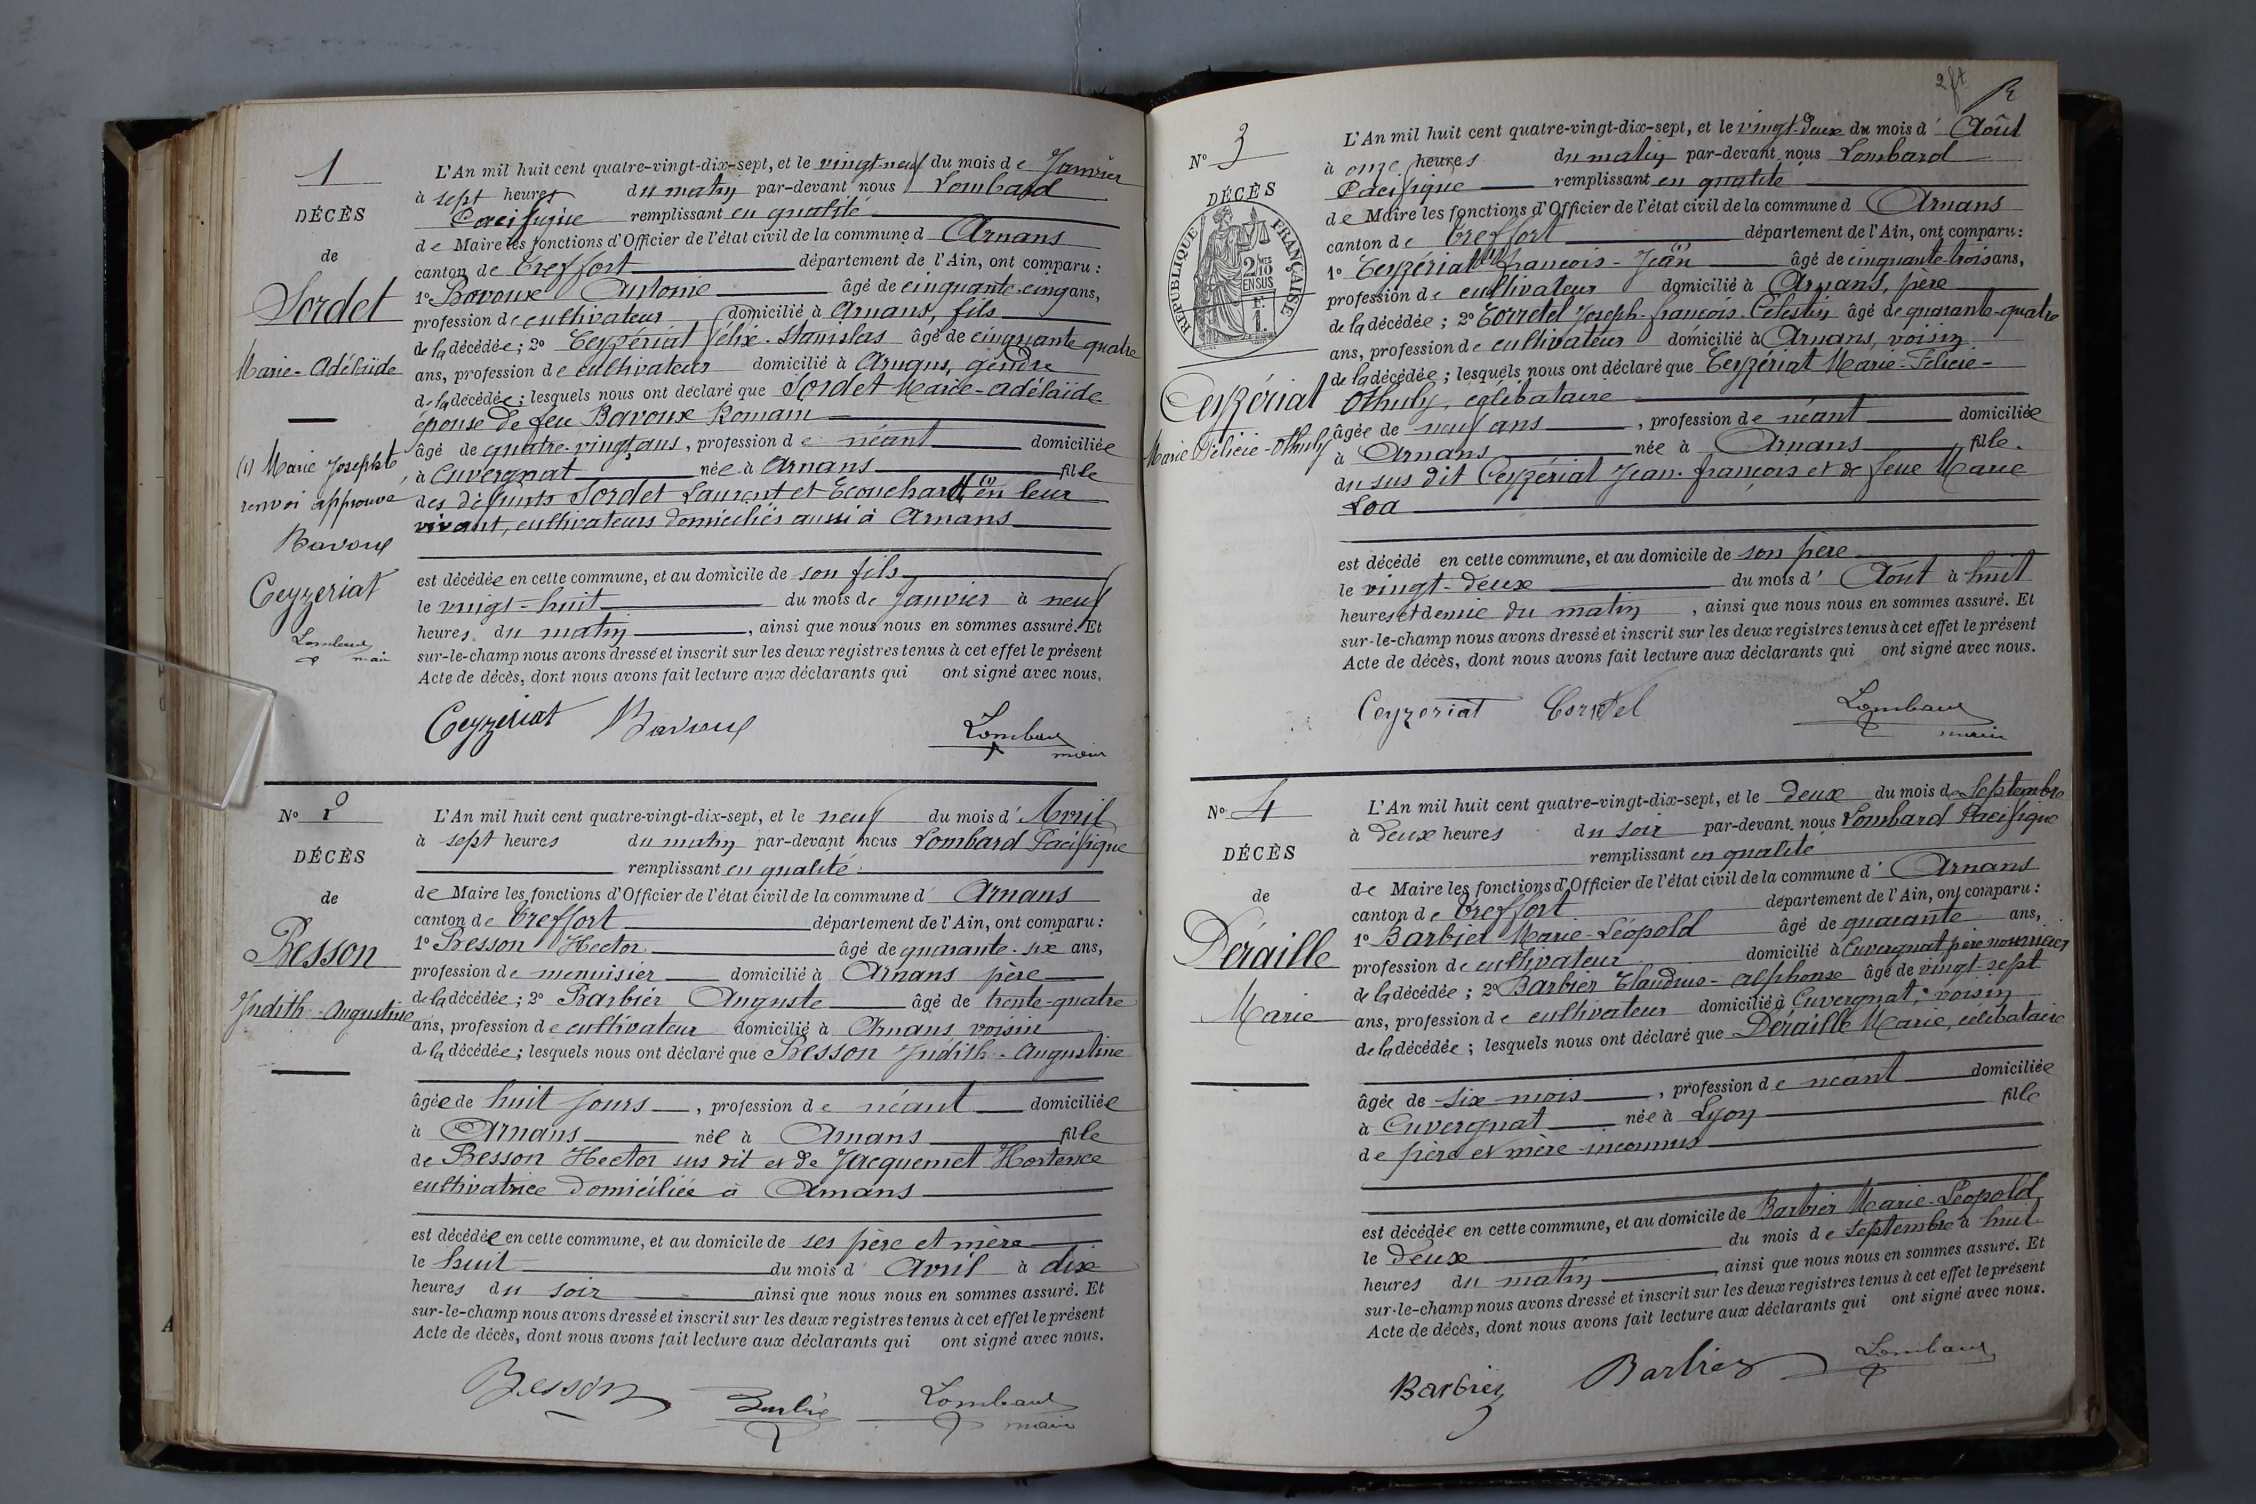 1
DÉCÈS
de
Sordet
Marie-Adélaïde
(1) Marie Josephte
renvoi approuvé
Bavoux
Ceyzeriat
Lombard
maire
L'An mil huit cent quatre-vingt-dix-sept, et le vingt-neuf du mois de Janvier
à sept heures du matin par-devant nous Lombard
Pacifique remplissant en qualité
de Maire les fonctions d'Officier de l'état civil de la commune d Arnans
canton de Treffort département de l'Ain, ont comparu :
1º Bavoux Antoine âgé de cinquante-cinq ans,
profession de cultivateur domicilié à Arnans, fils
de la décédée ; 2º Ceyzériat félix-Stanislas âgé de cinquante quatre
ans, profession de cultivateur domicilié à Arnans, gendre
de la décédée ; lesquels nous ont déclaré que Sordet Marie-Adélaïde
épouse de feu Bavoux Romain
âgé de quatre-vingt ans, profession de néant domiciliée
à Cuvergnat née à Arnans fille
des défunts Sordet Laurent et Ecouchard (1) en leur
vivant, cultivateurs domiciliés aussi à Arnans
est décédée en cette commune, et au domicile de son fils
le vingt-huit du mois de Janvier à neuf
heures du matin, ainsi que nous nous en sommes assuré. Et
sur-le-champ nous avons dressé et inscrit sur les deux registres tenus à cet effet le présent
Acte de décès, dont nous avons fait lecture aux déclarants qui ont signé avec nous.
Ceyzeriat Bavoux Lombard
maire
Nº 2
DÉCÈS
de
Besson
Judith-Augustine
L'An mil huit cent quatre-vingt-dix-sept, et le neuf du mois d'Avril
à sept heures du matin par-devant nous Lombard Pacifique
remplissant en qualité
de Maire les fonctions d'Officier de l'état civil de la commune d' Arnans
canton de Treffort département de l'Ain, ont comparu :
1º Besson Hector âgé de quarante-six ans,
profession de menuisier domicilié à Arnans père
de la décédée ; 2º Barbier Auguste âgé de trente-quatre
ans, profession de cultivateur domicilié à Arnans voisin
de la décédée ; lesquels nous ont déclaré que Besson Judith-Augustine
âgée de huit jours, profession de néant domiciliée
à Arnans née à Arnans fille
de Besson Hector sus dit et de Jacquemet Hortence
cultivatrice domiciliée à Arnans
est décédée en cette commune, et au domicile de ses père et mère
le huit du mois d Avril à dix
heures du soir ainsi que nous nous en sommes assuré. Et
sur-le-champ nous avons dressé et inscrit sur les deux registres tenus à cet effet le présent
Acte de décès, dont nous avons fait lecture aux déclarants qui ont signé avec nous.
Besson Barbier Lombard
maire
Nº 3
DÉCÈS
RÉPUBLIQUE FRANÇAISE
2/10 MES
EN SUS
F.
1.
Ceyzériat
Marie Félicie-Othuly
L'An mil huit cent quatre-vingt-dix-sept, et le vingt-deux du mois d' Août
à onze heures du matin par-devant nous Lombard
Pacifique remplissant en qualité
de Maire les fonctions d'Officier de l'état civil de la commune d Arnans
canton de Treffort département de l'Ain, ont comparu :
1º Ceyzériat françois-Jean âgé de cinquante-trois ans,
profession de cultivateur domicilié à Arnans, père
de la décédée ; 2º Corretel Joseph-françois-Célestin âgé de quarante-quatre
ans, profession de cultivateur domicilié à Arnans, voisin
de la décédée ; lesquels nous ont déclaré que Ceyzériat Marie-Félicie-
Othuly, célibataire
âgée de neuf ans, profession de néant domiciliée
à Arnans née à Arnans fille
du sus dit Ceyzériat Jean-françois et de feue Marie
Loa
est décédé en cette commune, et au domicile de son père
le vingt-deux du mois d' Août à huit
heures et demie du matin, ainsi que nous nous en sommes assuré. Et
sur-le-champ nous avons dressé et inscrit sur les deux registres tenus à cet effet le présent
Acte de décès, dont nous avons fait lecture aux déclarants qui ont signé avec nous.
Ceyzeriat Lombard
maire
Nº 4
DÉCÈS
de
Déraille
Marie
L'An mil huit cent quatre-vingt-dix-sept, et le deux du mois de Septembre
à deux heures du soir par-devant nous Lombard Pacifique
remplissant en qualité
de Maire les fonctions d'Officier de l'état civil de la commune d' Arnans
canton de Treffort département de l'Ain, ont comparu :
1º Barbier Marie-Léopold âgé de quarante ans,
profession de cultivateur domicilié à Cuvergnat père nourricier
de la décédée ; 2º Barbier Claudius-alphonse âgé de vingt-sept
ans, profession de cultivateur domicilié à Cuvergnat, voisin
de la décédée ; lesquels nous ont déclaré que Déraille Marie, célibataire
âgée de six mois, profession de néant domiciliée
à Cuvergnat née à Lyon fille
de père et mère inconnus
est décédée en cette commune, et au domicile de Barbier Marie-Léopold
le deux du mois de Septembre à huit
heures du matin, ainsi que nous nous en sommes assuré. Et
sur-le-champ nous avons dressé et inscrit sur les deux registres tenus à cet effet le présent
Acte de décès, dont nous avons fait lecture aux déclarants qui ont signé avec nous.
Barbier Barbier Lombard